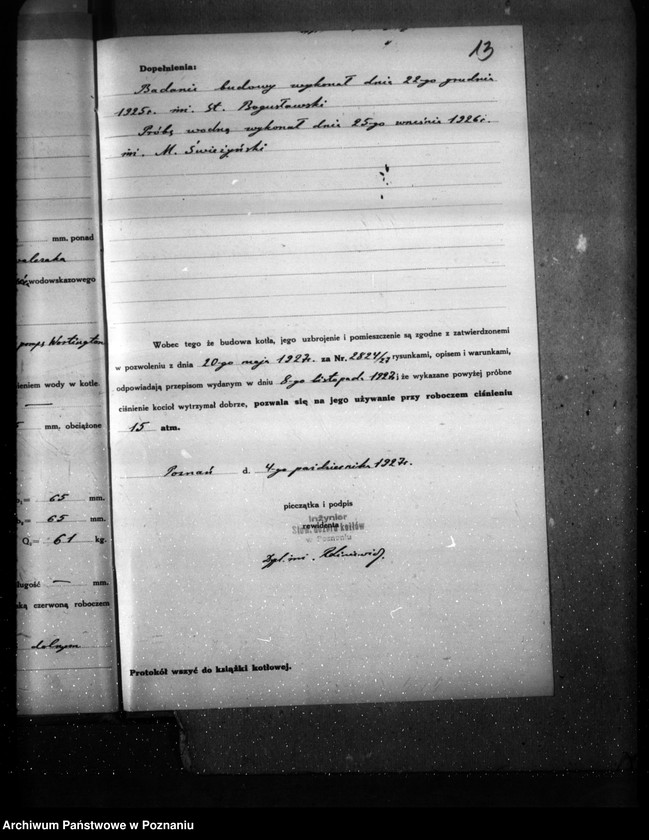 13
Dopełnienia:
Badanie budowy wykonał dnia 22-go grudnia
1925r. inż. St. Bogusławski
Próbę wodną wykonał dnia 25-go września 1926r.
inż. M. Świeżyński
Wobec tego że budowa kotła, jego uzbrojenie i pomieszczenie są zgodne z zatwierdzonemi
w pozwoleniu z dnia 20-go maja 1927r. za Nr. 2824/27 rysunkami, opisem i warunkami,
odpowiadają przepisom wydanym w dniu 8-go listopada i że wykazane powyżej próbne
ciśnienie kocioł wytrzymał dobrze, pozwala się na jego używanie przy roboczem ciśnieniu
15 atm.
Poznań d. 4-go października 1927r.
pieczątka i podpis
rewidenta
Inżynier
Stow. dozoru kotłów
w Poznaniu
Dypl. inż.
Protokół wszyć do książki kotłowej.
mm. ponad
wodowskazowego
pompa Wortington
ieniem wody w kotle.
mm, obciążone
= 65 mm.
= 65 mm.
= 61 kg.
ługość — mm.
ską czerwoną roboczem
dolnym
Archiwum Państwowe w Poznaniu